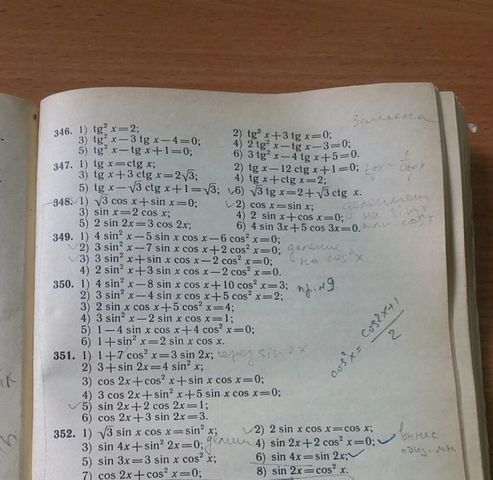 Замена
346. 1) tg² x=2; 2) tg² x+3 tg x=0;
3) tg² x−3 tg x−4=0; 4) 2 tg² x−tg x−3=0;
5) tg² x−tg x+1=0; 6) 3 tg² x−4 tg x+5=0.
347. 1) tg x=ctg x; 2) tg x−12 ctg x+1=0;
3) tg x+3 ctg x=2√3; 4) tg x+ctg x=2;
5) tg x−√3 ctg x+1=√3; 6) √3 tg x=2+√3 ctg x.
348. 1) √3 cos x+sin x=0; 2) cos x=sin x;
3) sin x=2 cos x; 4) 2 sin x+cos x=0;
5) 2 sin 2x=3 cos 2x; 6) 4 sin 3x+5 cos 3x=0.
349. 1) 4 sin² x−5 sin x cos x−6 cos² x=0;
2) 3 sin² x−7 sin x cos x+2 cos² x=0; деление
3) 3 sin² x+sin x cos x−2 cos² x=0; на cos² x
4) 2 sin² x+3 sin x cos x−2 cos² x=0.
350. 1) 4 sin² x−8 sin x cos x+10 cos² x=3; пр. №9
2) 3 sin² x−4 sin x cos x+5 cos² x=2;
3) 2 sin x cos x+5 cos² x=4;
4) 3 sin² x−2 sin x cos x=1;
5) 1−4 sin x cos x+4 cos² x=0;
6) 1+sin² x=2 sin x cos x.
cos² x = cos2x+1
2
351. 1) 1+7 cos² x=3 sin 2x; через sin 2x
2) 3+sin 2x=4 sin² x;
3) cos 2x+cos² x+sin x cos x=0;
4) 3 cos 2x+sin² x+5 sin x cos x=0;
5) sin 2x+2 cos 2x=1;
6) cos 2x+3 sin 2x=3.
352. 1) √3 sin x cos x=sin² x; 2) 2 sin x cos x=cos x;
3) sin 4x+sin² 2x=0; 4) sin 2x+2 cos² x=0; вынес
5) sin 3x=3 sin x cos² x; 6) sin 4x=sin 2x;
7) cos 2x+cos² x=0; 8) sin 2x=cos² x.